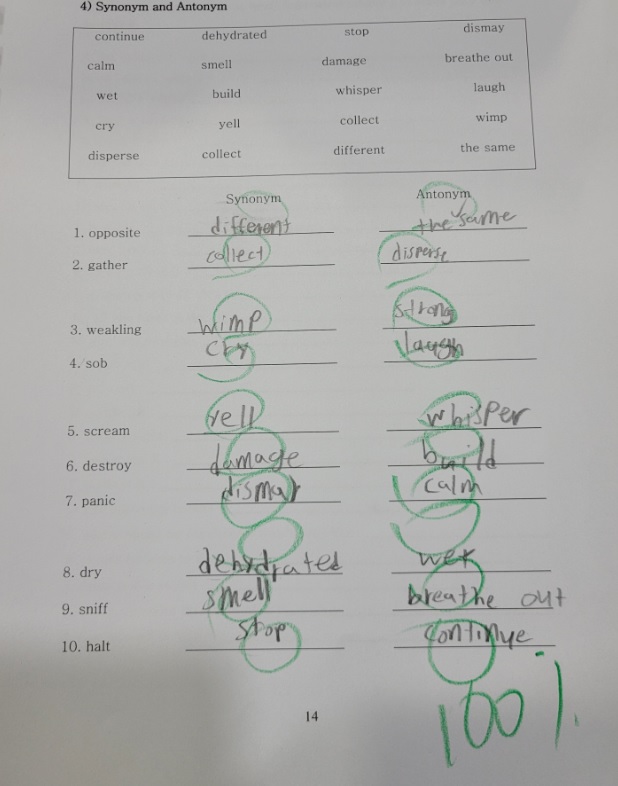 4) Synonym and Antonym
continue dehydrated stop dismay
calm smell damage breathe out
wet build whisper laugh
cry yell collect wimp
disperse collect different the same
Synonym Antonym
1. opposite different the same
2. gather collect disperse
3. weakling wimp strong
4. sob cry laugh
5. scream yell whisper
6. destroy damage build
7. panic dismay calm
8. dry dehydrated wet
9. sniff smell breathe out
10. halt stop continye
14
100%